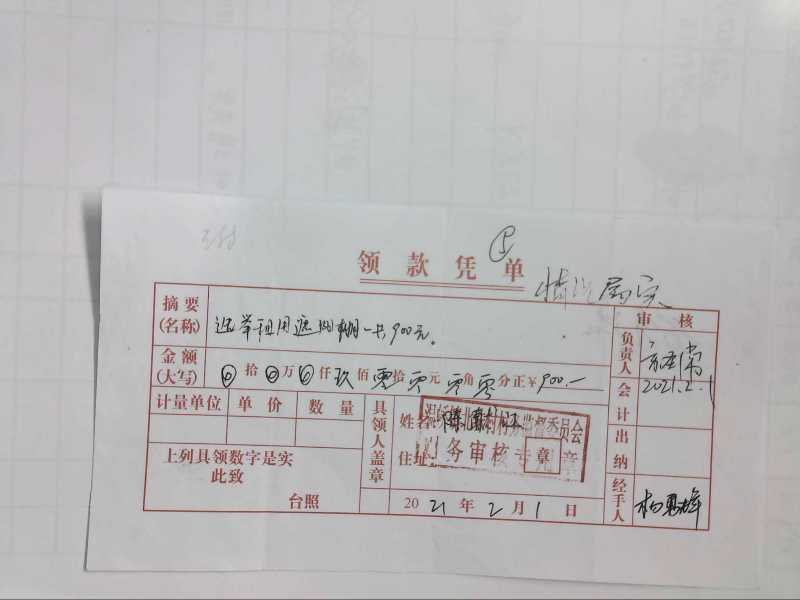 领款凭单
情况属实
摘要
(名称)
选举租用遮阳棚一共900元。
审核
金额
(大写)
0拾0万0仟玖佰零拾零元零角零分正¥900.—
负责人
2021.2.1
会计
计量单位 单价 数量
具领人盖章
姓名
村务监督委员会
财务审核专用章
住址
出纳
上列具领数字是实
此致
台照
2021年2月1日
经手人